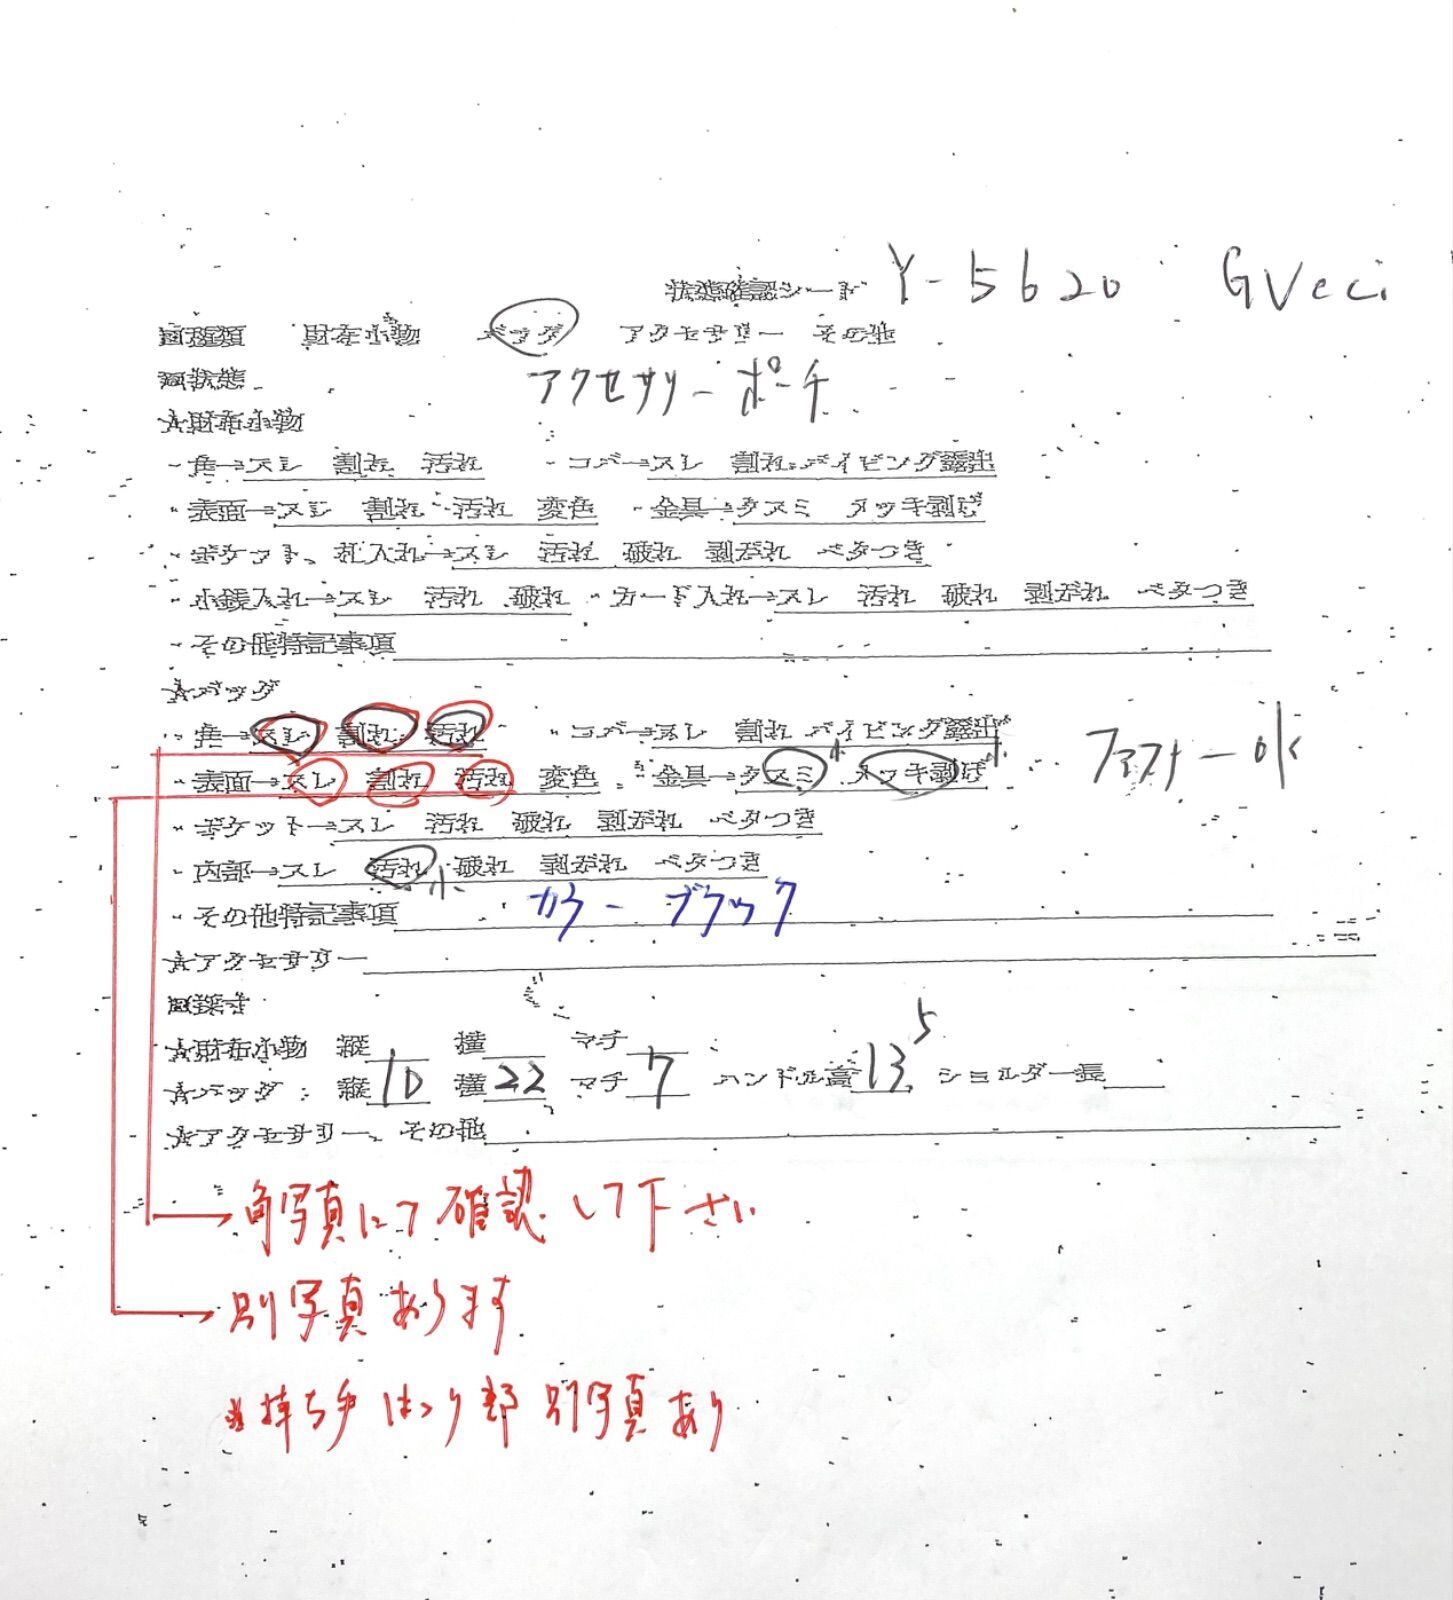 状態確認シート Y-5620 GVcci
□種類 財布小物 バッグ アクセサリー その他
□状態 アクセサリーポーチ
☆財布小物
・角→スレ 割れ 汚れ ・コバ→スレ 割れ パイピング露出
・表面→スレ 割れ 汚れ 変色 ・金具→クスミ メッキ剥げ
・ポケット、札入れ→スレ 汚れ 破れ 剥がれ ベタつき
・小銭入れ→スレ 汚れ 破れ ・カード入れ→スレ 汚れ 破れ 剥がれ ベタつき
・その他特記事項
☆バッグ
・角→スレ 割れ 汚れ ・コバ→スレ 割れ パイピング露出
・表面→スレ 割れ 汚れ 変色 ・金具→クスミ小 メッキ剥げ小 ファスナーOK
・ポケット→スレ 汚れ 破れ 剥がれ ベタつき
・内部→スレ 汚れ小 破れ 剥がれ ベタつき
・その他特記事項 カラー ブラック
☆アクセサリー
□採寸
☆財布小物 縦 横 マチ
☆バッグ : 縦10 横22 マチ7 ハンドル高13.5 ショルダー長
☆アクセサリー、その他
角写真にて確認して下さい
別写真あります
※持ち手 部 別写真あり